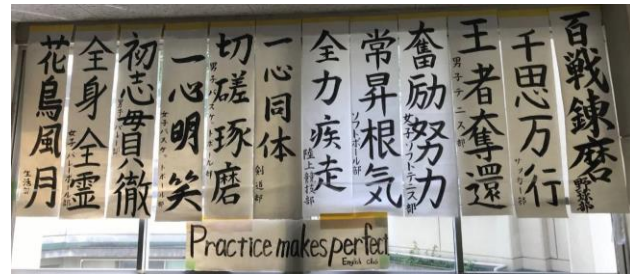 百戦錬磨
野球部
千思万行
サッカー部
王者奪還
男子テニス部
奮励努力
女子ソフトテニス部
常昇根気
ソフトボール部
全力疾走
陸上競技部
一心同体
剣道部
切磋琢磨
男子バスケットボール部
一心明笑
女子バスケットボール部
初志貫徹
全身全霊
女子バレーボール部
花鳥風月
Practice makes perfect
English club